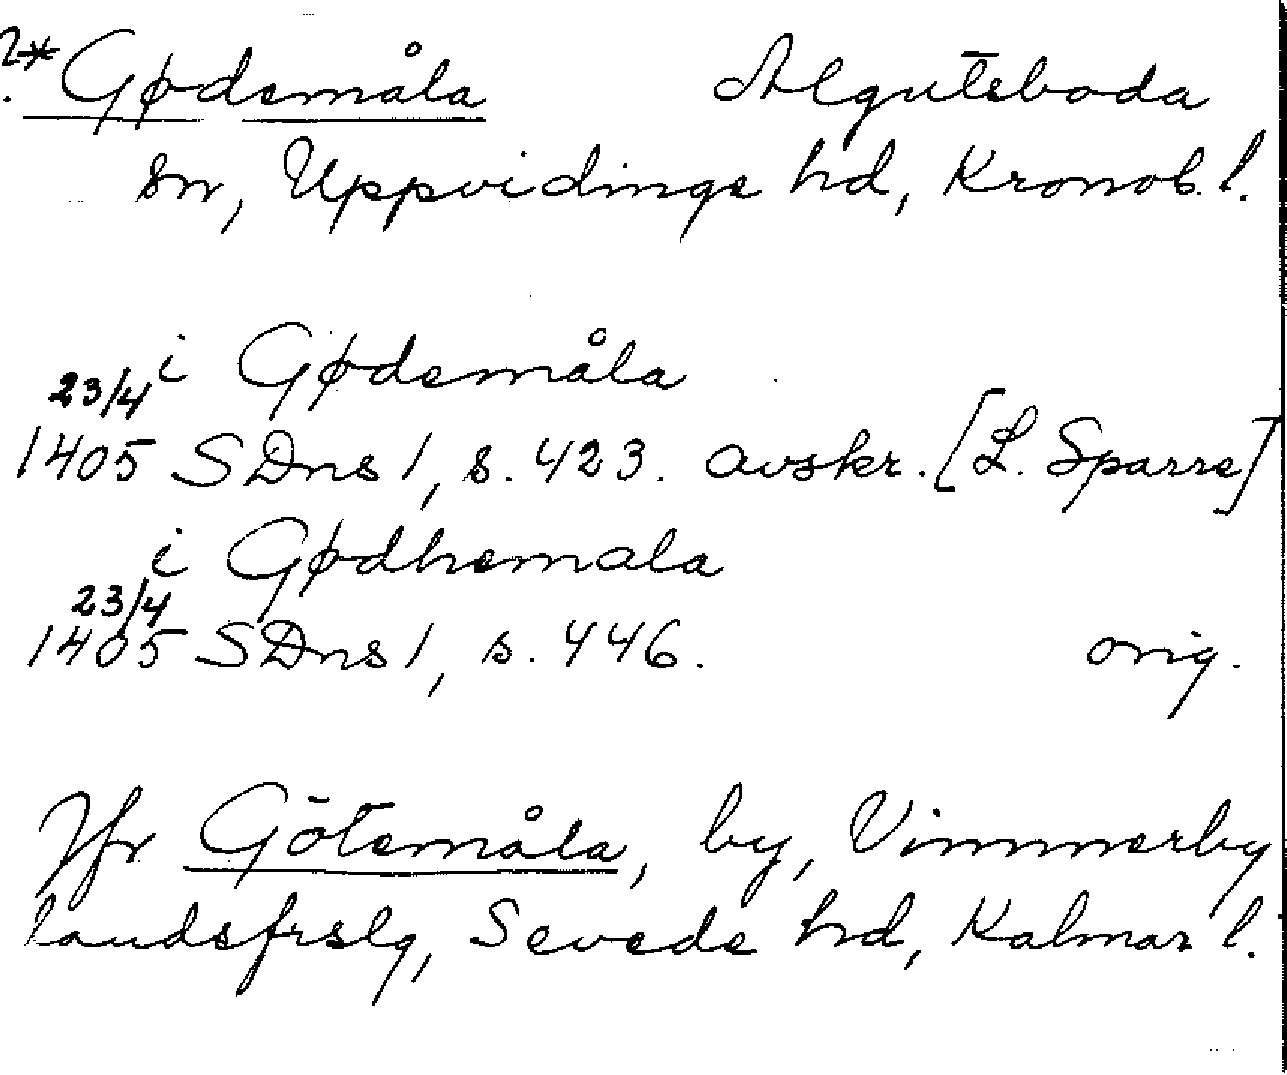 ?* Gødemåla Algutsboda
sn, Uppvidinge hd, Kronob. l.
i Gødemåla
23/4
1405 SDns 1, s. 423. avskr. [L. Sparre]
i Gødhemala
23/4
1405 SDns 1, s. 446. orig.
Jfr Götemåla, by, Vimmerby
landsfrslg, Sevede hd, Kalmar l.